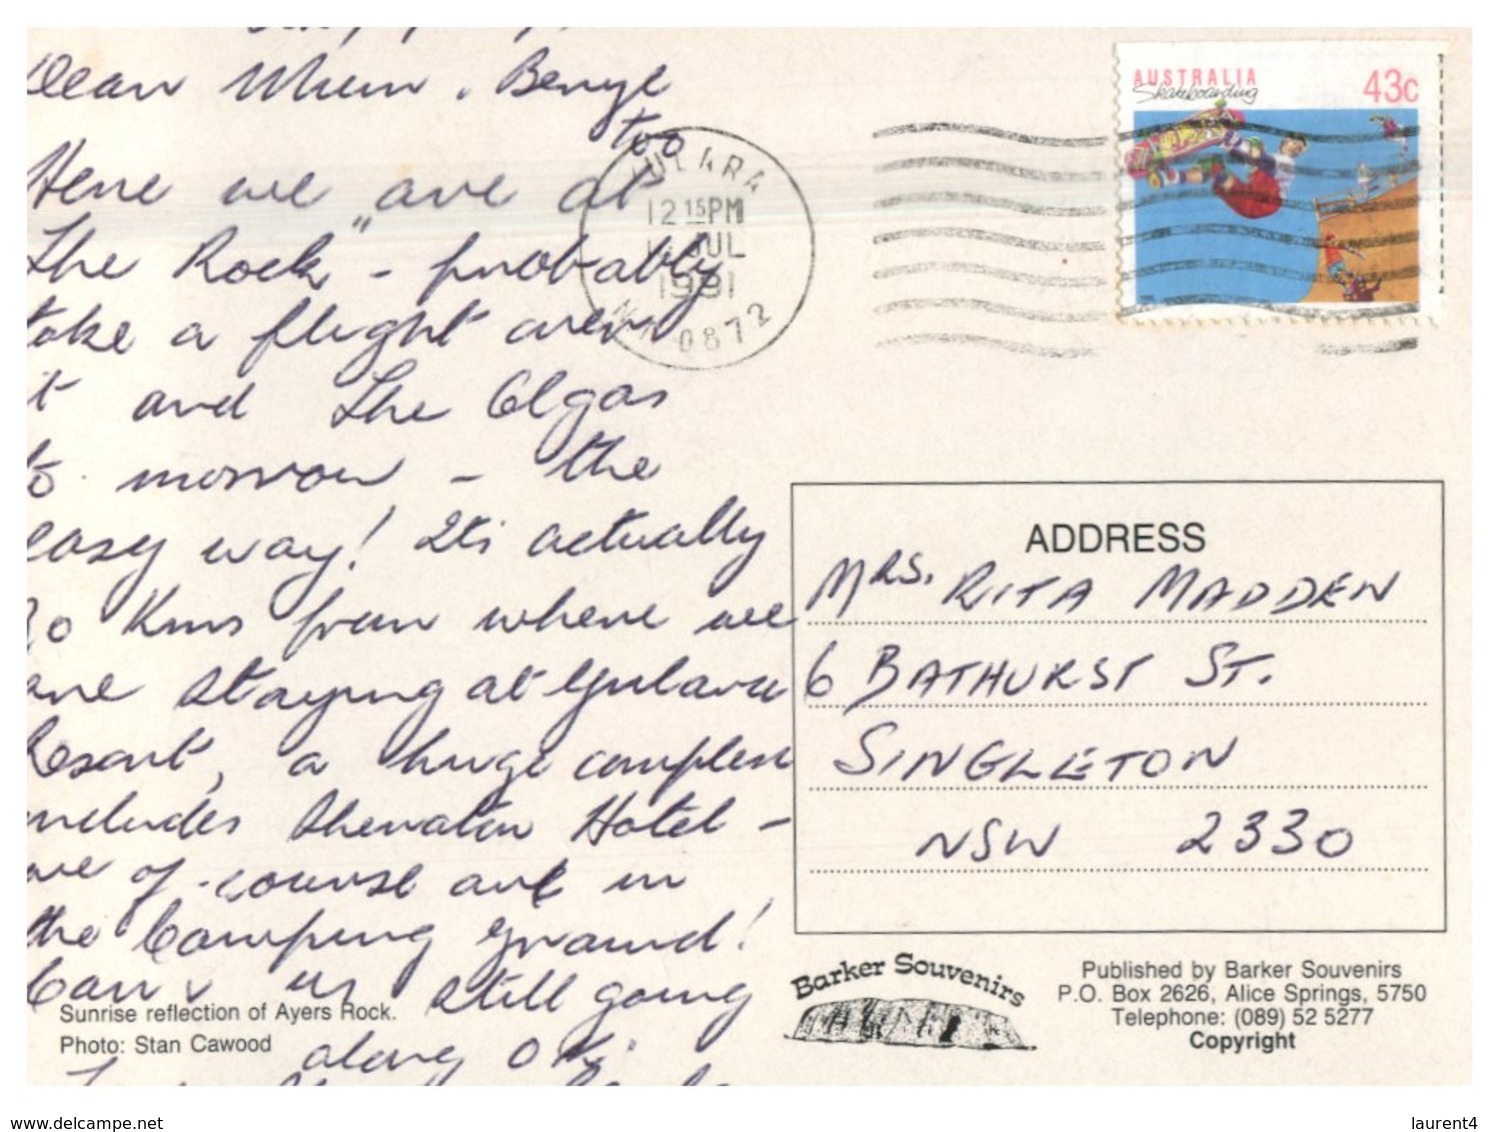 Dear Mum, Beryl
too
Here we are at
The Rock" - probably
take a flight over
it and the Olgas
to morrow - the
easy way! Its actually
20 Kms from where we
are staying at Yulara
Resort, a huge complex
includes Sheraton Hotel -
we of course are in
the Camping ground!
Car & us still going
along OK.
Sunrise reflection of Ayers Rock.
Photo: Stan Cawood
AUSTRALIA 43c
Skateboarding
YULARA
12 15PM
JUL
1991
N.T. 0872
ADDRESS
MRS. RITA MADDEN
6 BATHURST ST.
SINGLETON
NSW 2330
Barker Souvenirs
Published by Barker Souvenirs
P.O. Box 2626, Alice Springs, 5750
Telephone: (089) 52 5277
Copyright
www.delcampe.net
laurent4